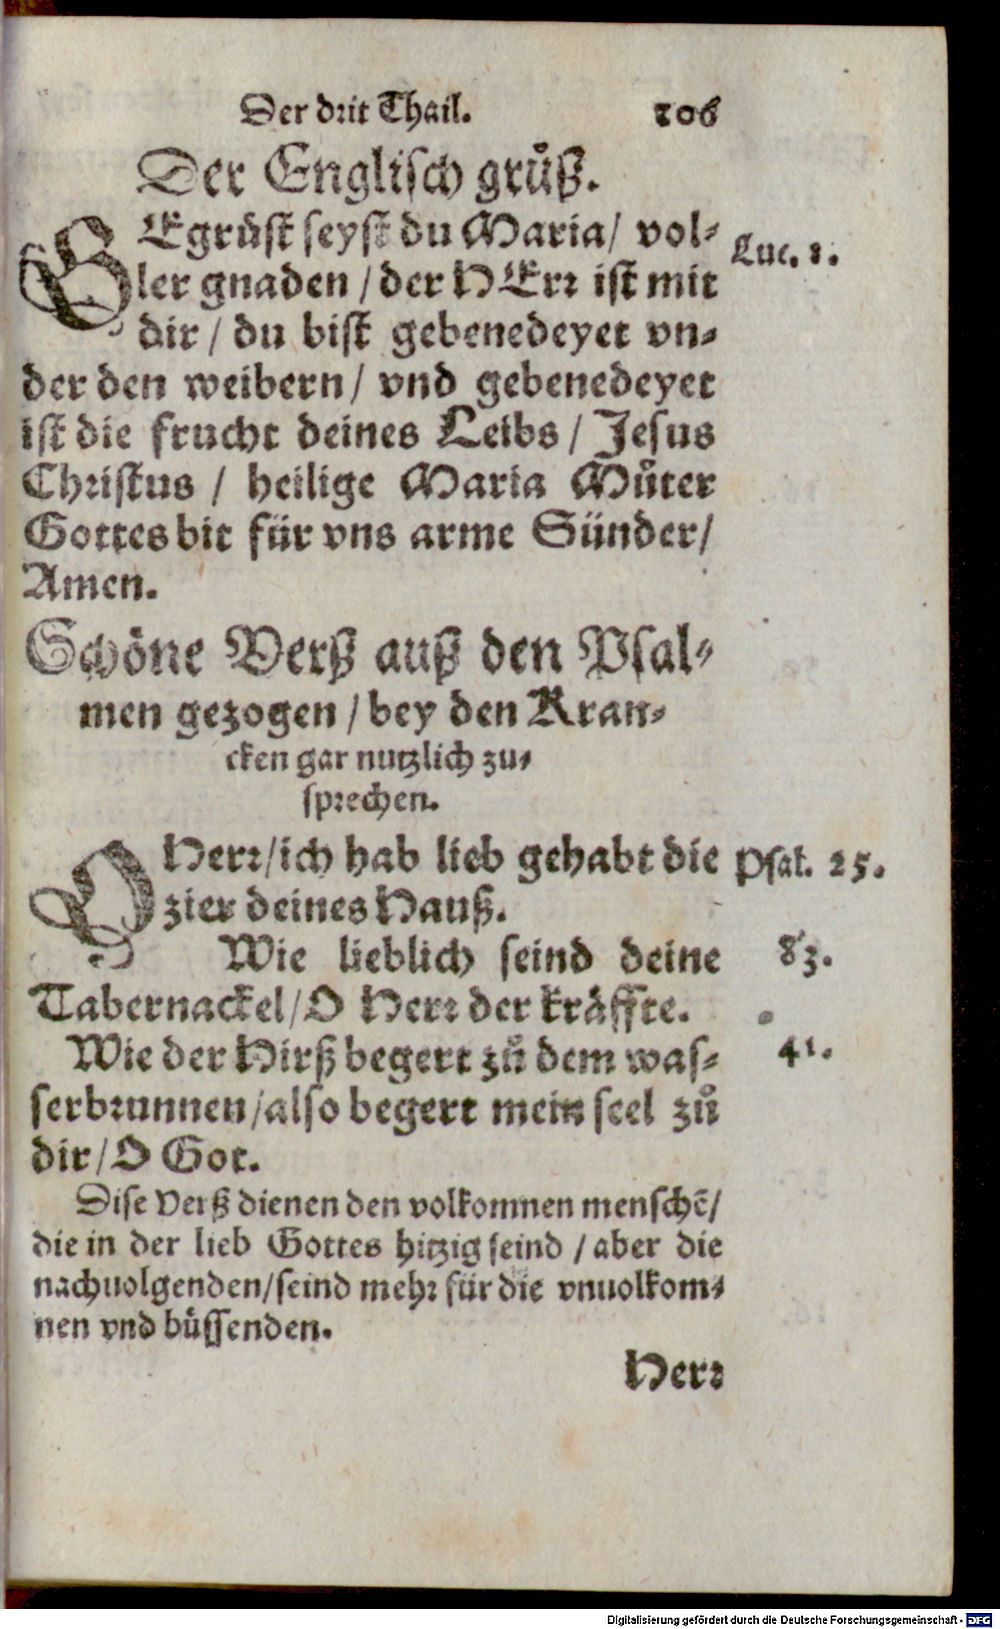 Der drit Thail. 106
Der Englisch grůß.
GEgrüst seyst du Maria/ vol-
ler gnaden / der HErr ist mit
dir / du bist gebenedeyet vn-
der den weibern / vnd gebenedeyet
ist die frucht deines Leibs / Jesus
Christus / heilige Maria Můter
Gottes bit für vns arme Sünder/
Amen.
Luc. 1.
Schöne Verß auß den Psal-
men gezogen / bey den Kran-
cken gar nutzlich zu-
sprechen.
O Herr/ich hab lieb gehabt die
zier deines Hauß.
Psal. 25.
Wie lieblich seind deine
Tabernackel/O Herr der kräffte.
83.
Wie der Hirß begert zů dem was-
serbrunnen/also begert mein seel zů
dir/O Got.
41.
Dise Verß dienen den volkomnen menschē/
die in der lieb Gottes hitzig seind / aber die
nachuolgenden/seind mehr für die vnuolkom-
nen vnd büssenden.
Herr
Digitalisierung gefördert durch die Deutsche Forschungsgemeinschaft - DFG